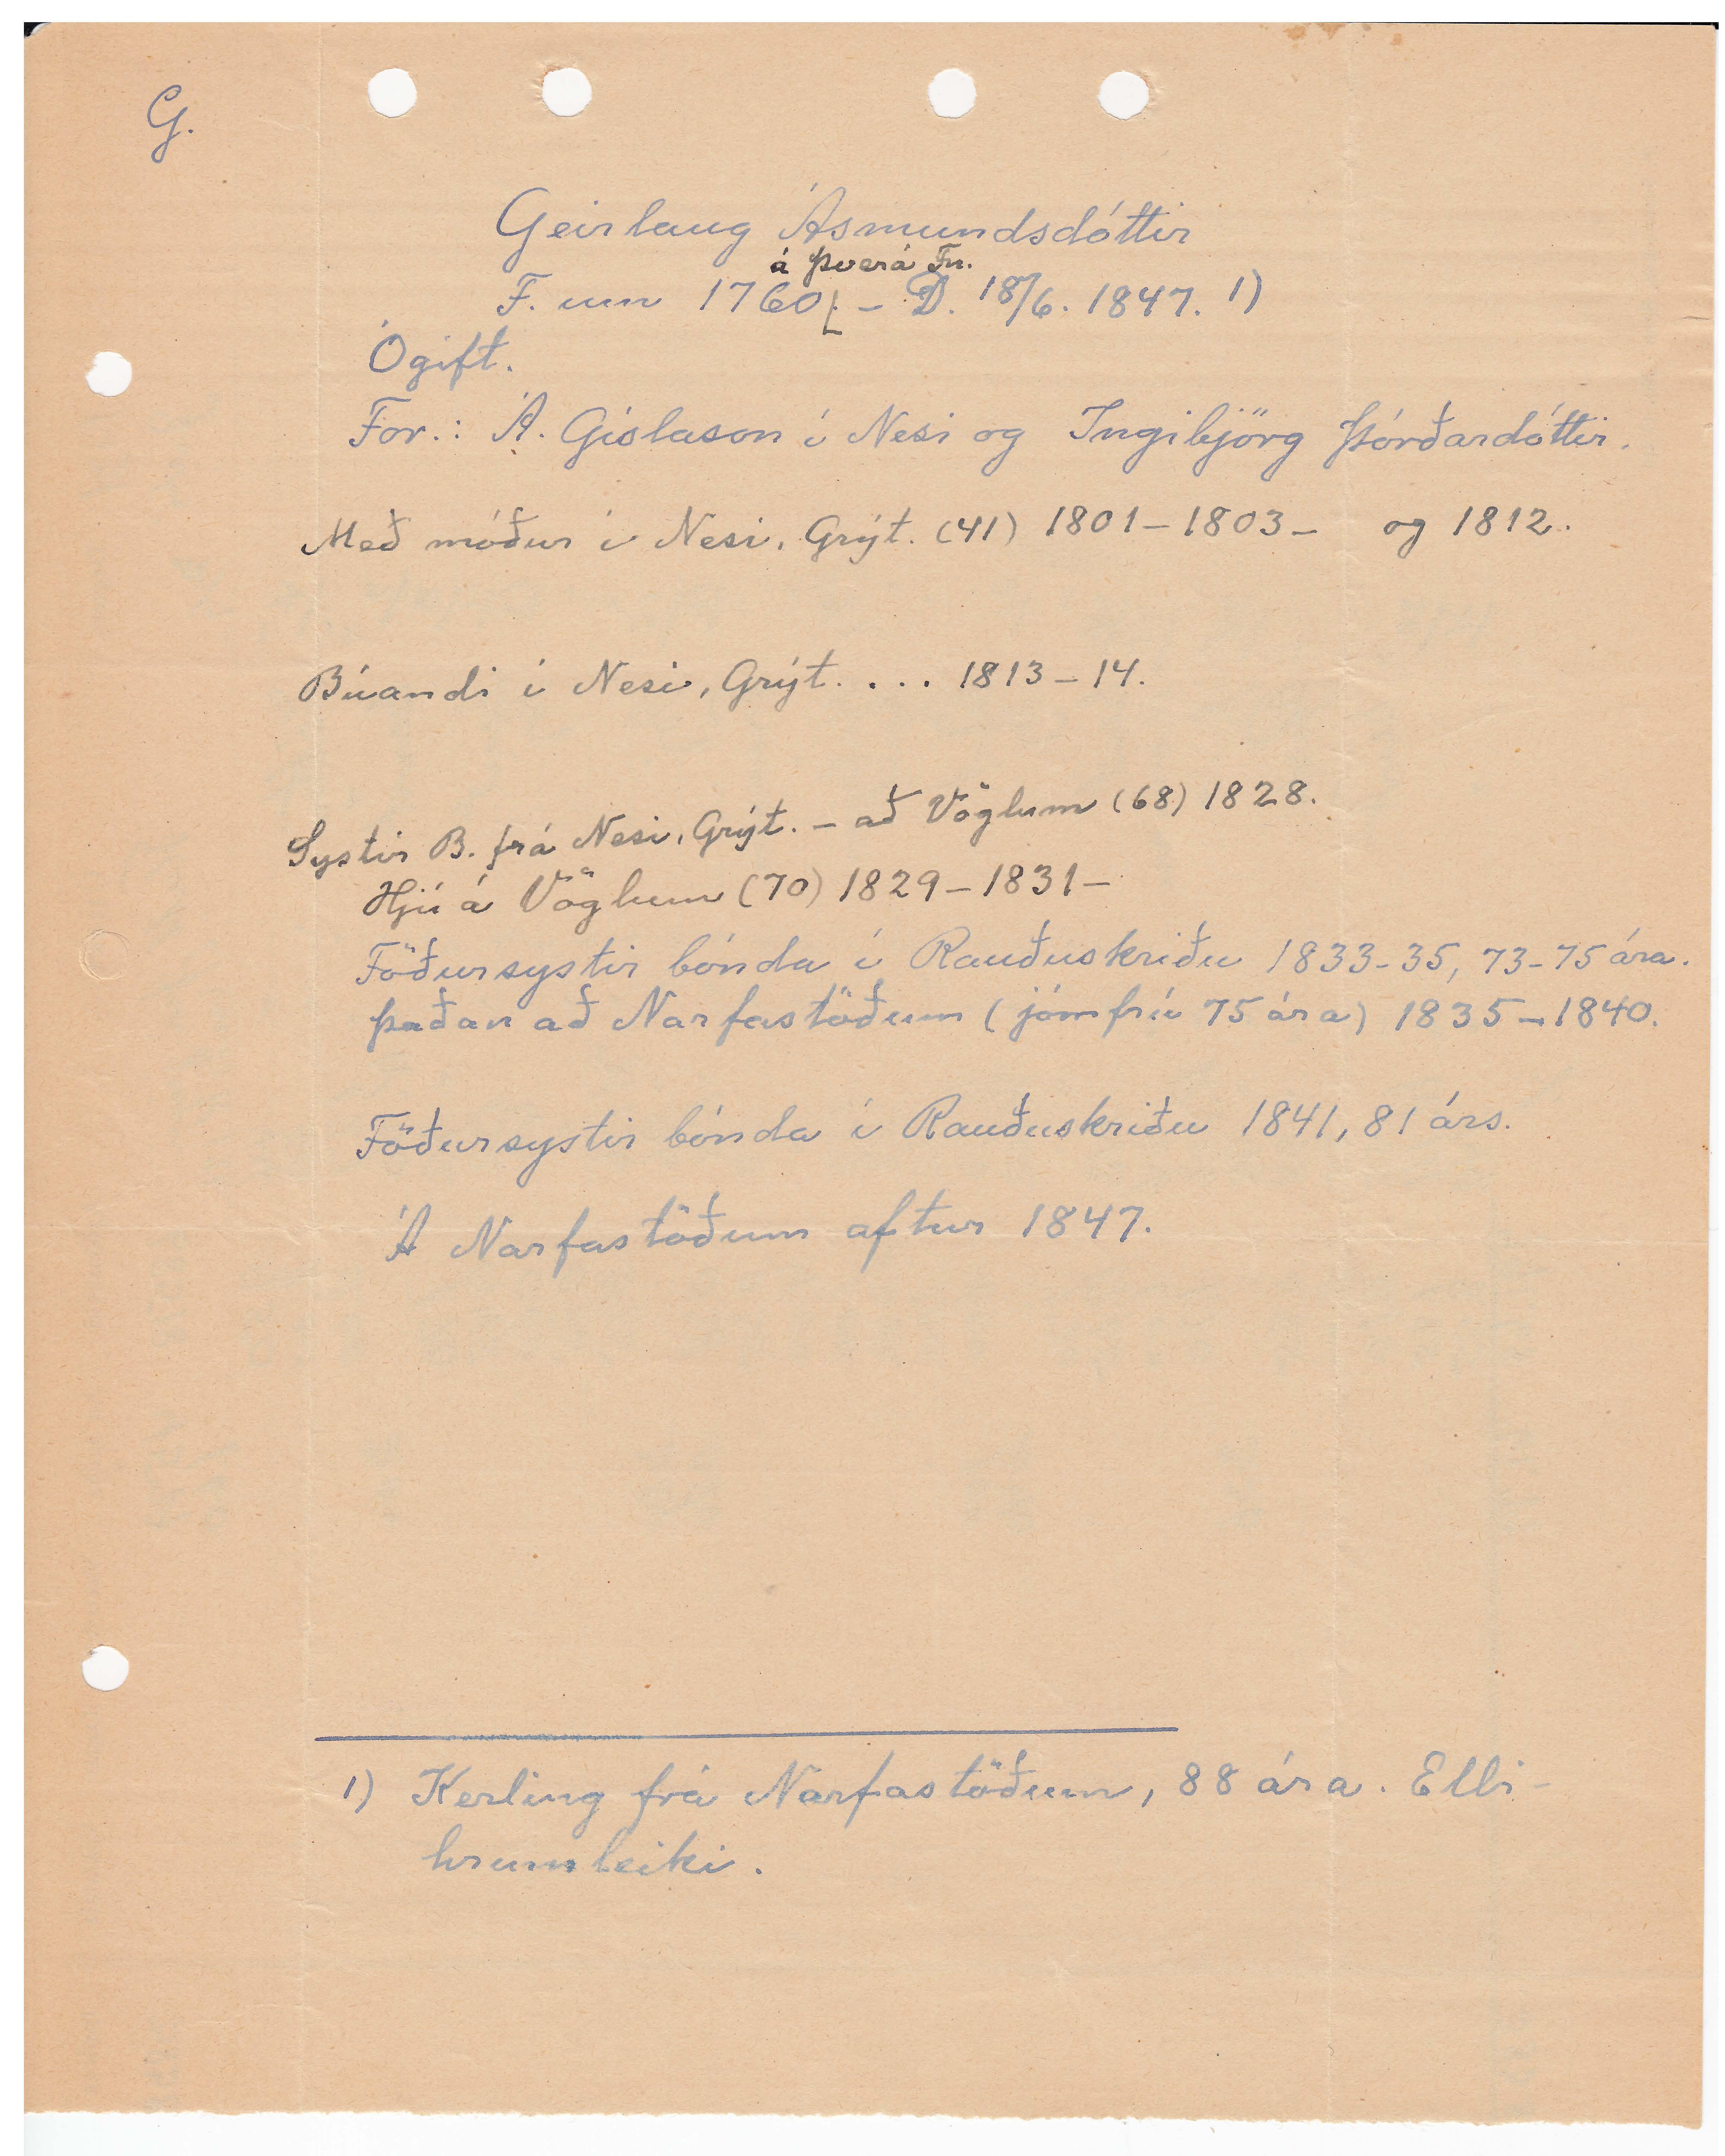 G.
Geirlaug Ásmundsdóttir
á Þverá Fn.
F. um 1760 - D. 18/6. 1847. 1)
Ógift.
For.: Á. Gíslason í Nesi og Ingibjörg Þórðardóttir.
Með móður í Nesi, Grýt. (41) 1801-1803- og 1812.
Búandi í Nesi, Grýt. ... 1813-14.
Systir B. frá Nesi, Grýt. - að Vöglum (68) 1828.
Hjú á Vöglum (70) 1829-1831-
Föðursystir bónda í Rauðuskriðu 1833-35, 73-75 ára.
Þaðan að Narfastöðum (jómfrú 75 ára) 1835-1840.
Föðursystir bónda í Rauðuskriðu 1841, 81 árs.
Á Narfastöðum aftur 1847.
1) Kerling frá Narfastöðum, 88 ára. Elli-
hrumleiki.